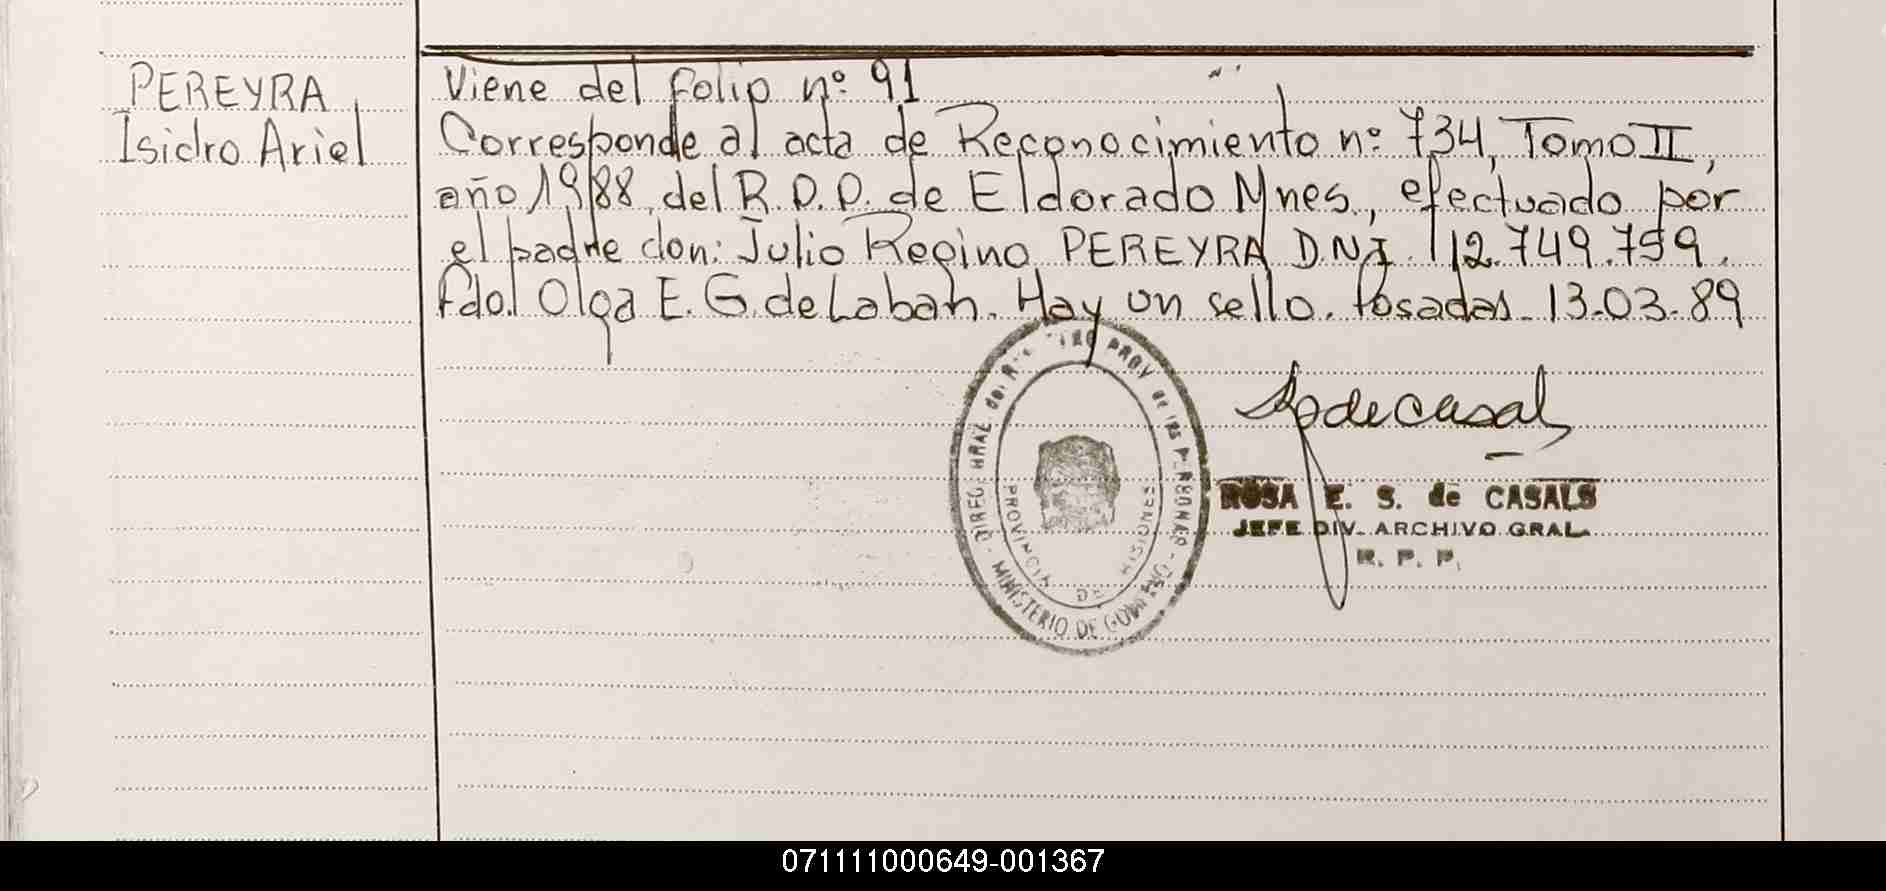 PEREYRA
Isidro Ariel
Viene del folio nº 91
Corresponde al acta de Reconocimiento nº 734, Tomo II,
año 1988, del R.P.P. de Eldorado Mnes., efectuado por
el padre don: Julio Regino PEREYRA D.N.I. 12.749.759.
Fdo. Olga E. G. de Laban. Hay un sello. Posadas. 13-03-89
DIREC. GRAL. del PROV de las PERSONAS
MINISTERIO DE GOBIERNO
PROVINCIA DE MISIONES
ROSA E. S. de CASALS
JEFE DIV. ARCHIVO GRAL.
R. P. P.
071111000649-001367